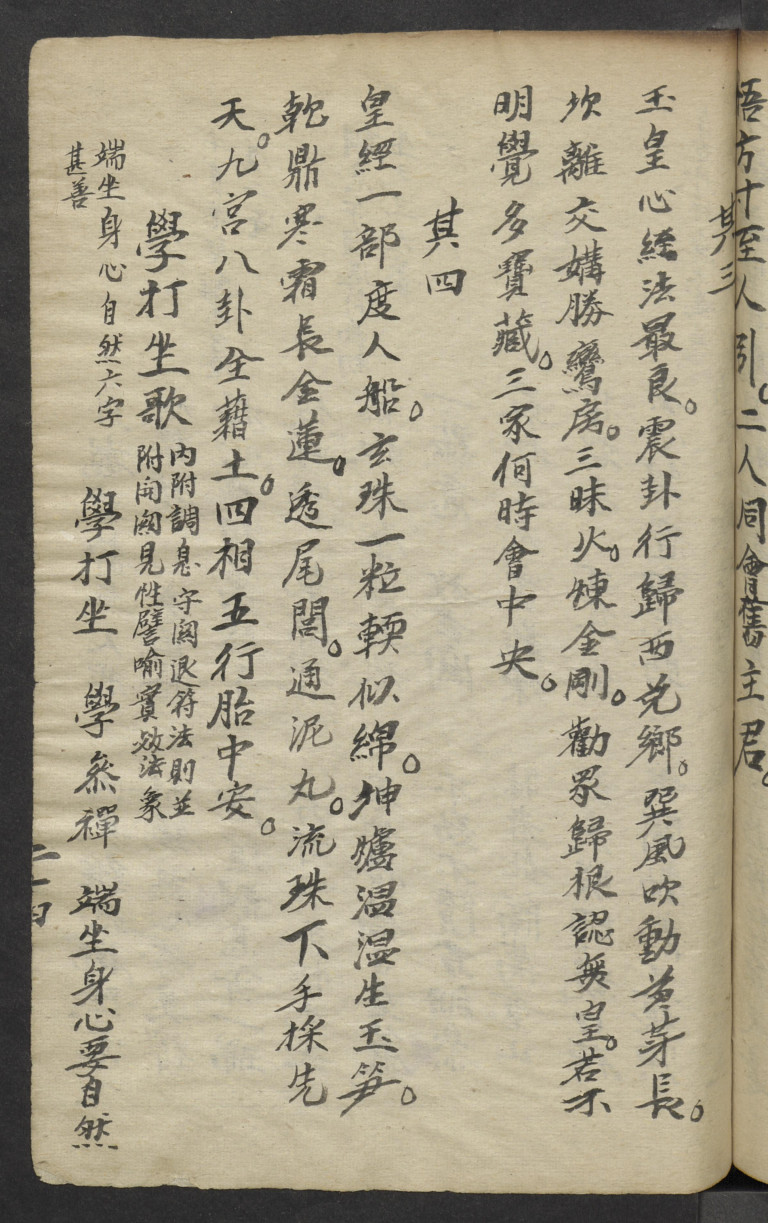 悟方寸至人引。二人同會舊主君。
其三
玉皇心經法最良。震卦行歸西兌鄉。巽風吹動黄芽長。
坎離交媾勝鸞房。三昧火。煉金剛。勸眾歸根認無皇。若不
明覺多寶藏。三家何時會中央。
其四
皇經一部度人船。玄珠一粒輭似綿。坤爐温温生玉笋。
乾鼎寒霜長金蓮。透尾閭。通泥丸。流珠下手採先
天。九宮八卦全藉土。四相五行胎中安。
學打坐歌
內附調息守闕退符法則並
附開闕見性譬喻實效法象
端坐身心自然六字
甚善
學打坐 學叅禪 端坐身心要自然